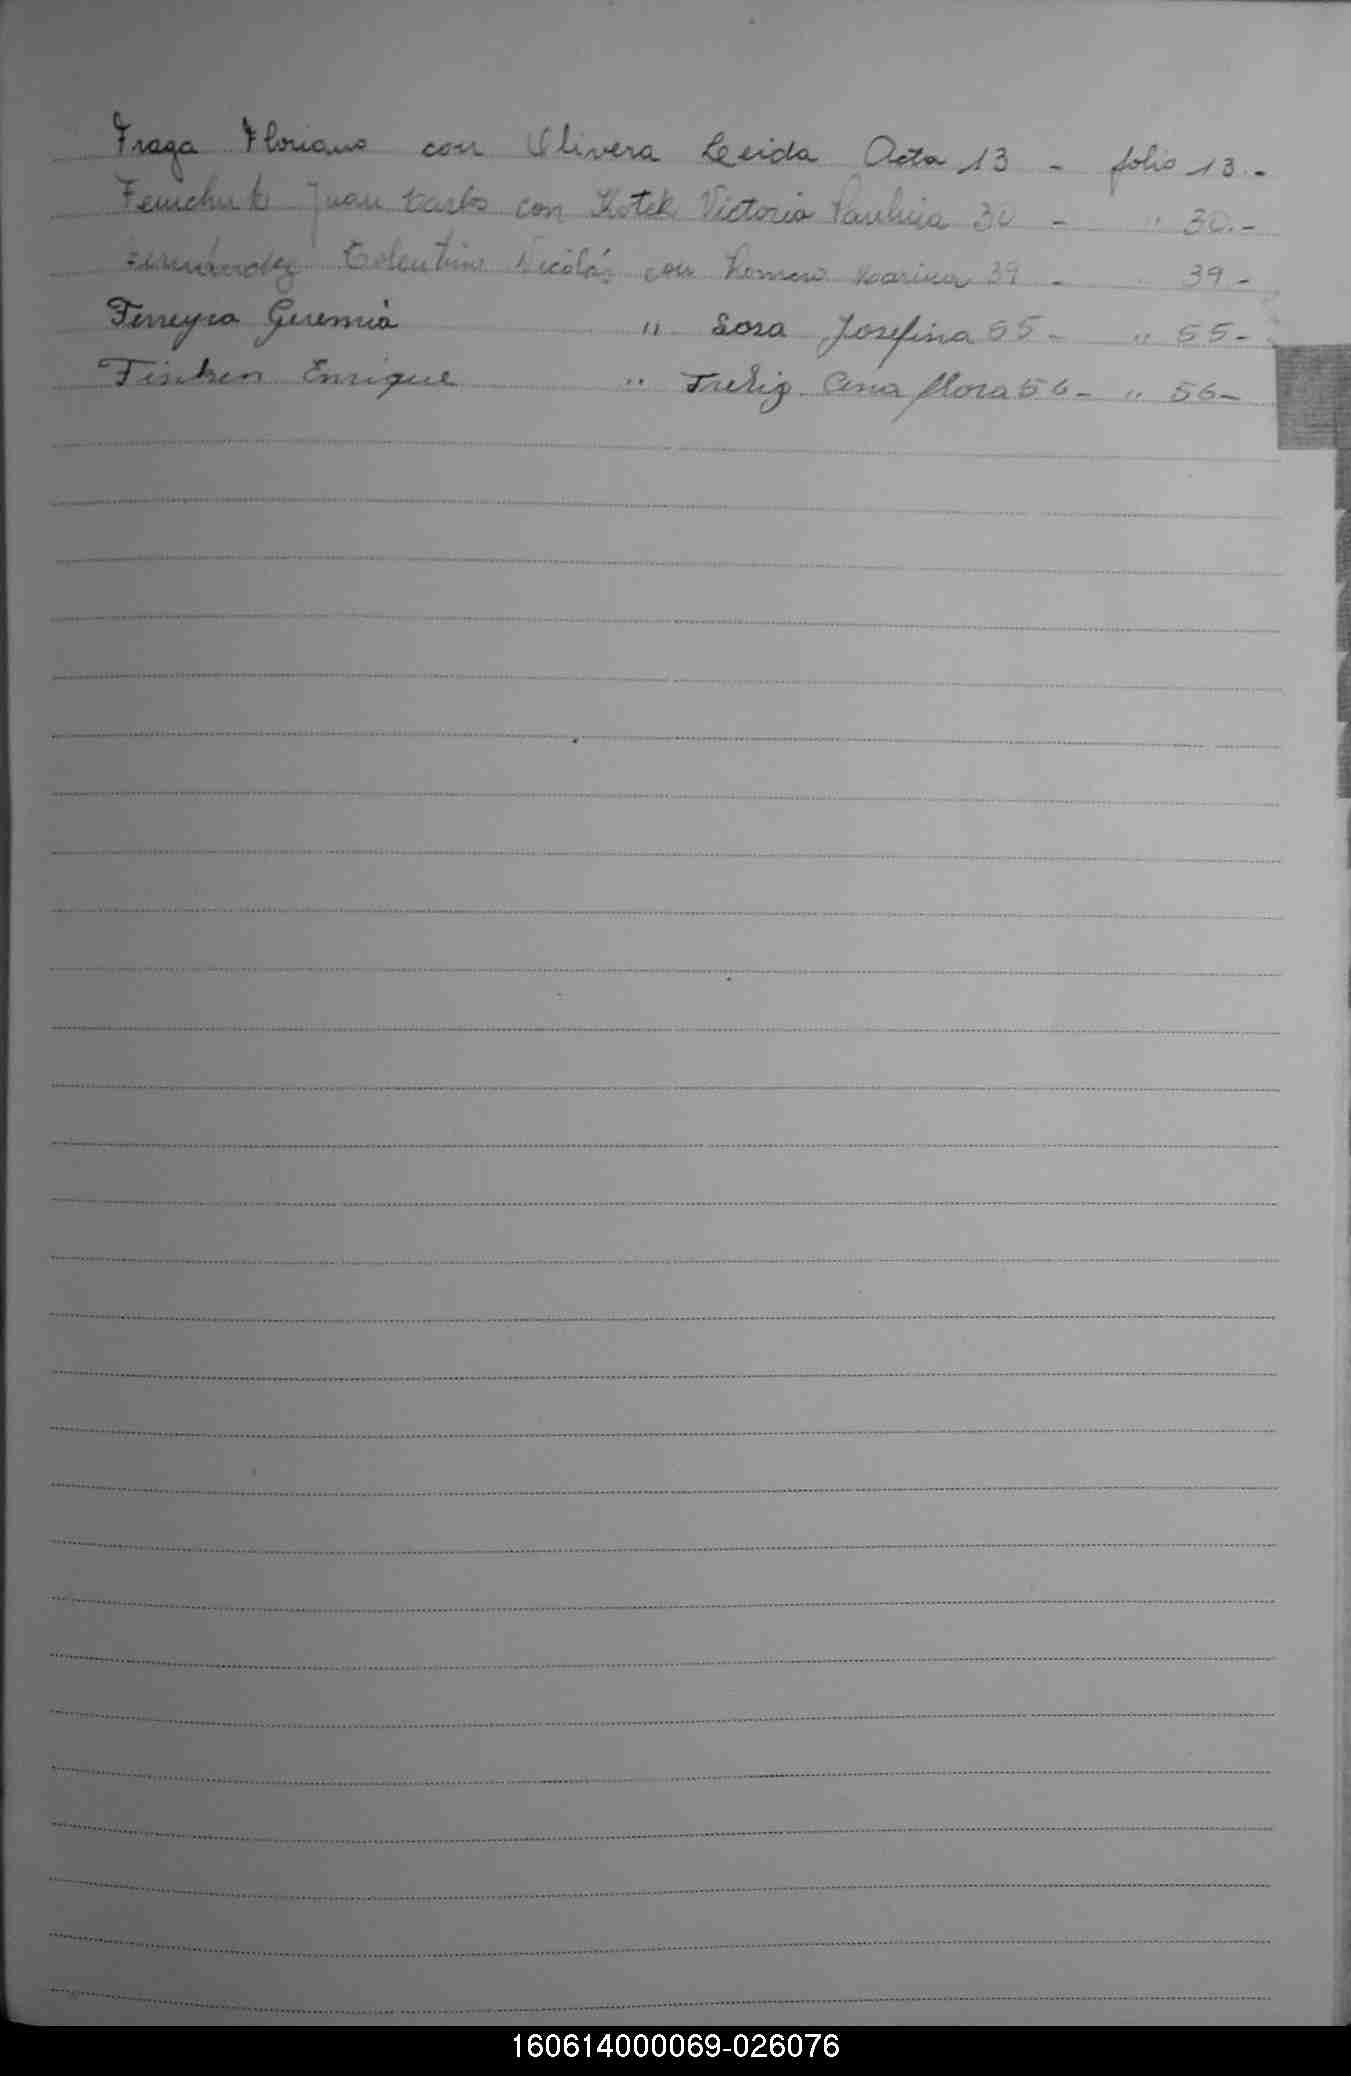 Fraga Floriano con Olivera Leida Acta 13 - folio 13.-
Juan Carlos con Kotek Victoria Paulina 30 - " 30.-
Fernández Tolentino Nicolás con Romero 39 - 39-
Ferreyra Geremia " Sosa Josefina 55- " 55-
Enrique " Ana flora 56- " 56-
160614000069-026076